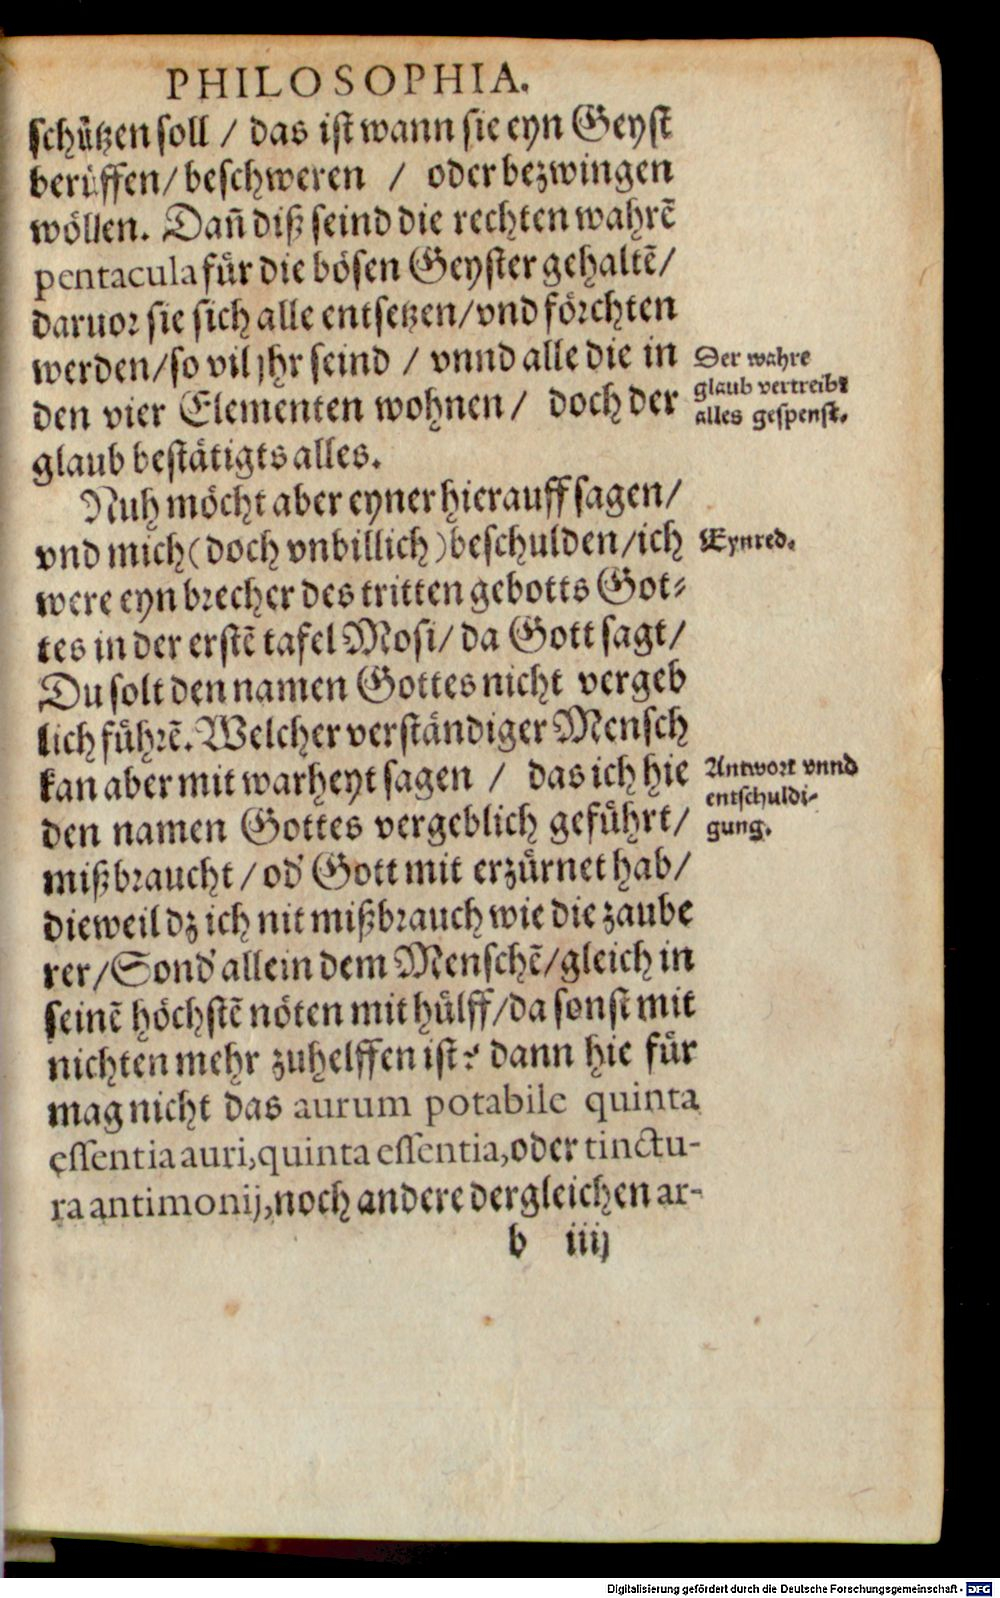 PHILOSOPHIA.
schützen soll / das ist wann sie eyn Geyst
berüffen/ beschweren / oder bezwingen
wöllen. Dañ diß seind die rechten wahrẽ
pentacula für die bösen Geyster gehaltẽ/
daruor sie sich alle entsetzen/ vnd förchten
werden/ so vil jhr seind / vnnd alle die in
den vier Elementen wohnen / doch der
glaub bestätigts alles.
Der wahre
glaub vertreibt
alles gespenst.
Nuh möcht aber eyner hierauff sagen/
vnd mich (doch vnbillich) beschulden/ ich
Eynred.
were eyn brecher des tritten gebotts Got-
tes in der erstẽ tafel Mosi/ da Gott sagt/
Du solt den namen Gottes nicht vergeb
lich führẽ. Welcher verständiger Mensch
kan aber mit warheyt sagen / das ich hie
den namen Gottes vergeblich geführt/
mißbraucht / od' Gott mit erzürnet hab/
Antwort vnnd
entschuldi-
gung.
dieweil dz ich nit mißbrauch wie die zaube
rer/ Sond' allein dem Menschẽ/ gleich in
seinẽ höchstẽ nöten mit hülff/ da sonst mit
nichten mehr zuhelffen ist? dann hie für
mag nicht das aurum potabile quinta
essentia auri, quinta essentia, oder tinctu-
ra antimonij, noch andere dergleichen ar-
b iiij
Digitalisierung gefördert durch die Deutsche Forschungsgemeinschaft - DFG